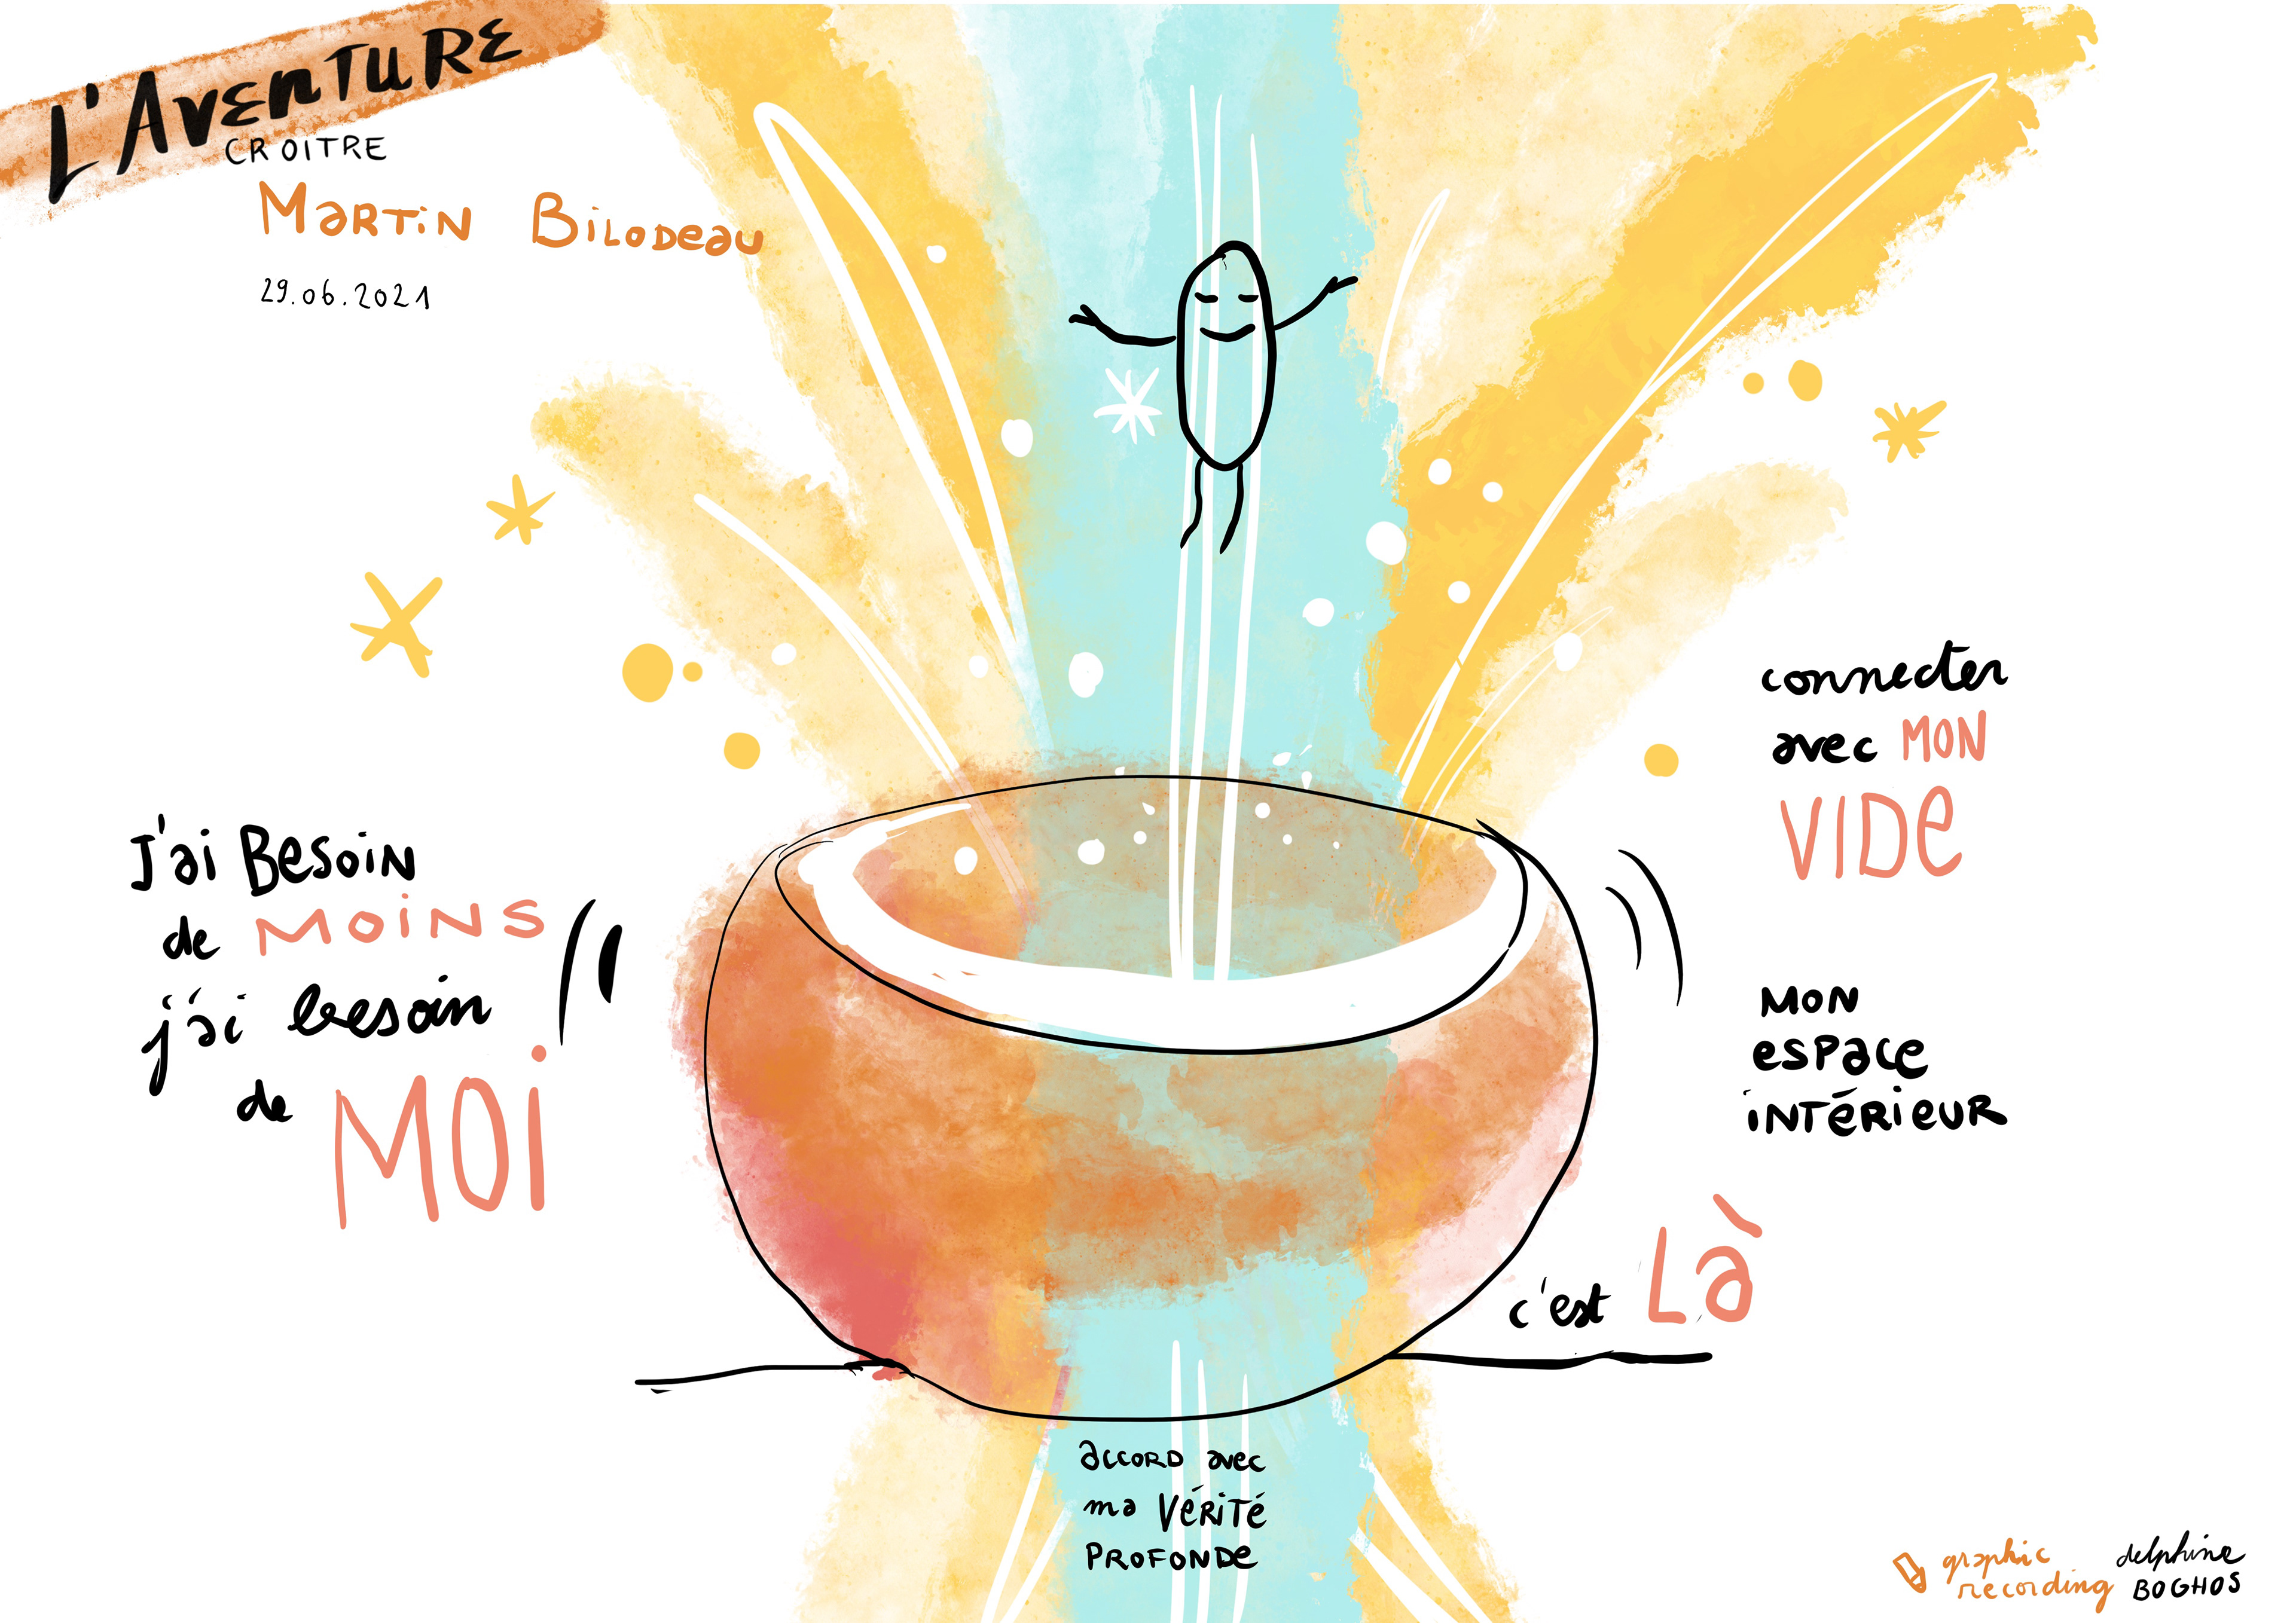 L'AVENTURE
CROITRE
MARTIN BILODEAU
29.06.2021
J'ai BESOIN
de MOINS
j'ai besoin
de MOI
connecter
avec MON
VIDE
MON
ESPACE
INTÉRIEUR
c'est Là
ACCORD avec
ma VÉRITÉ
PROFONDE
graphic
recording
delphine
BOGHOS